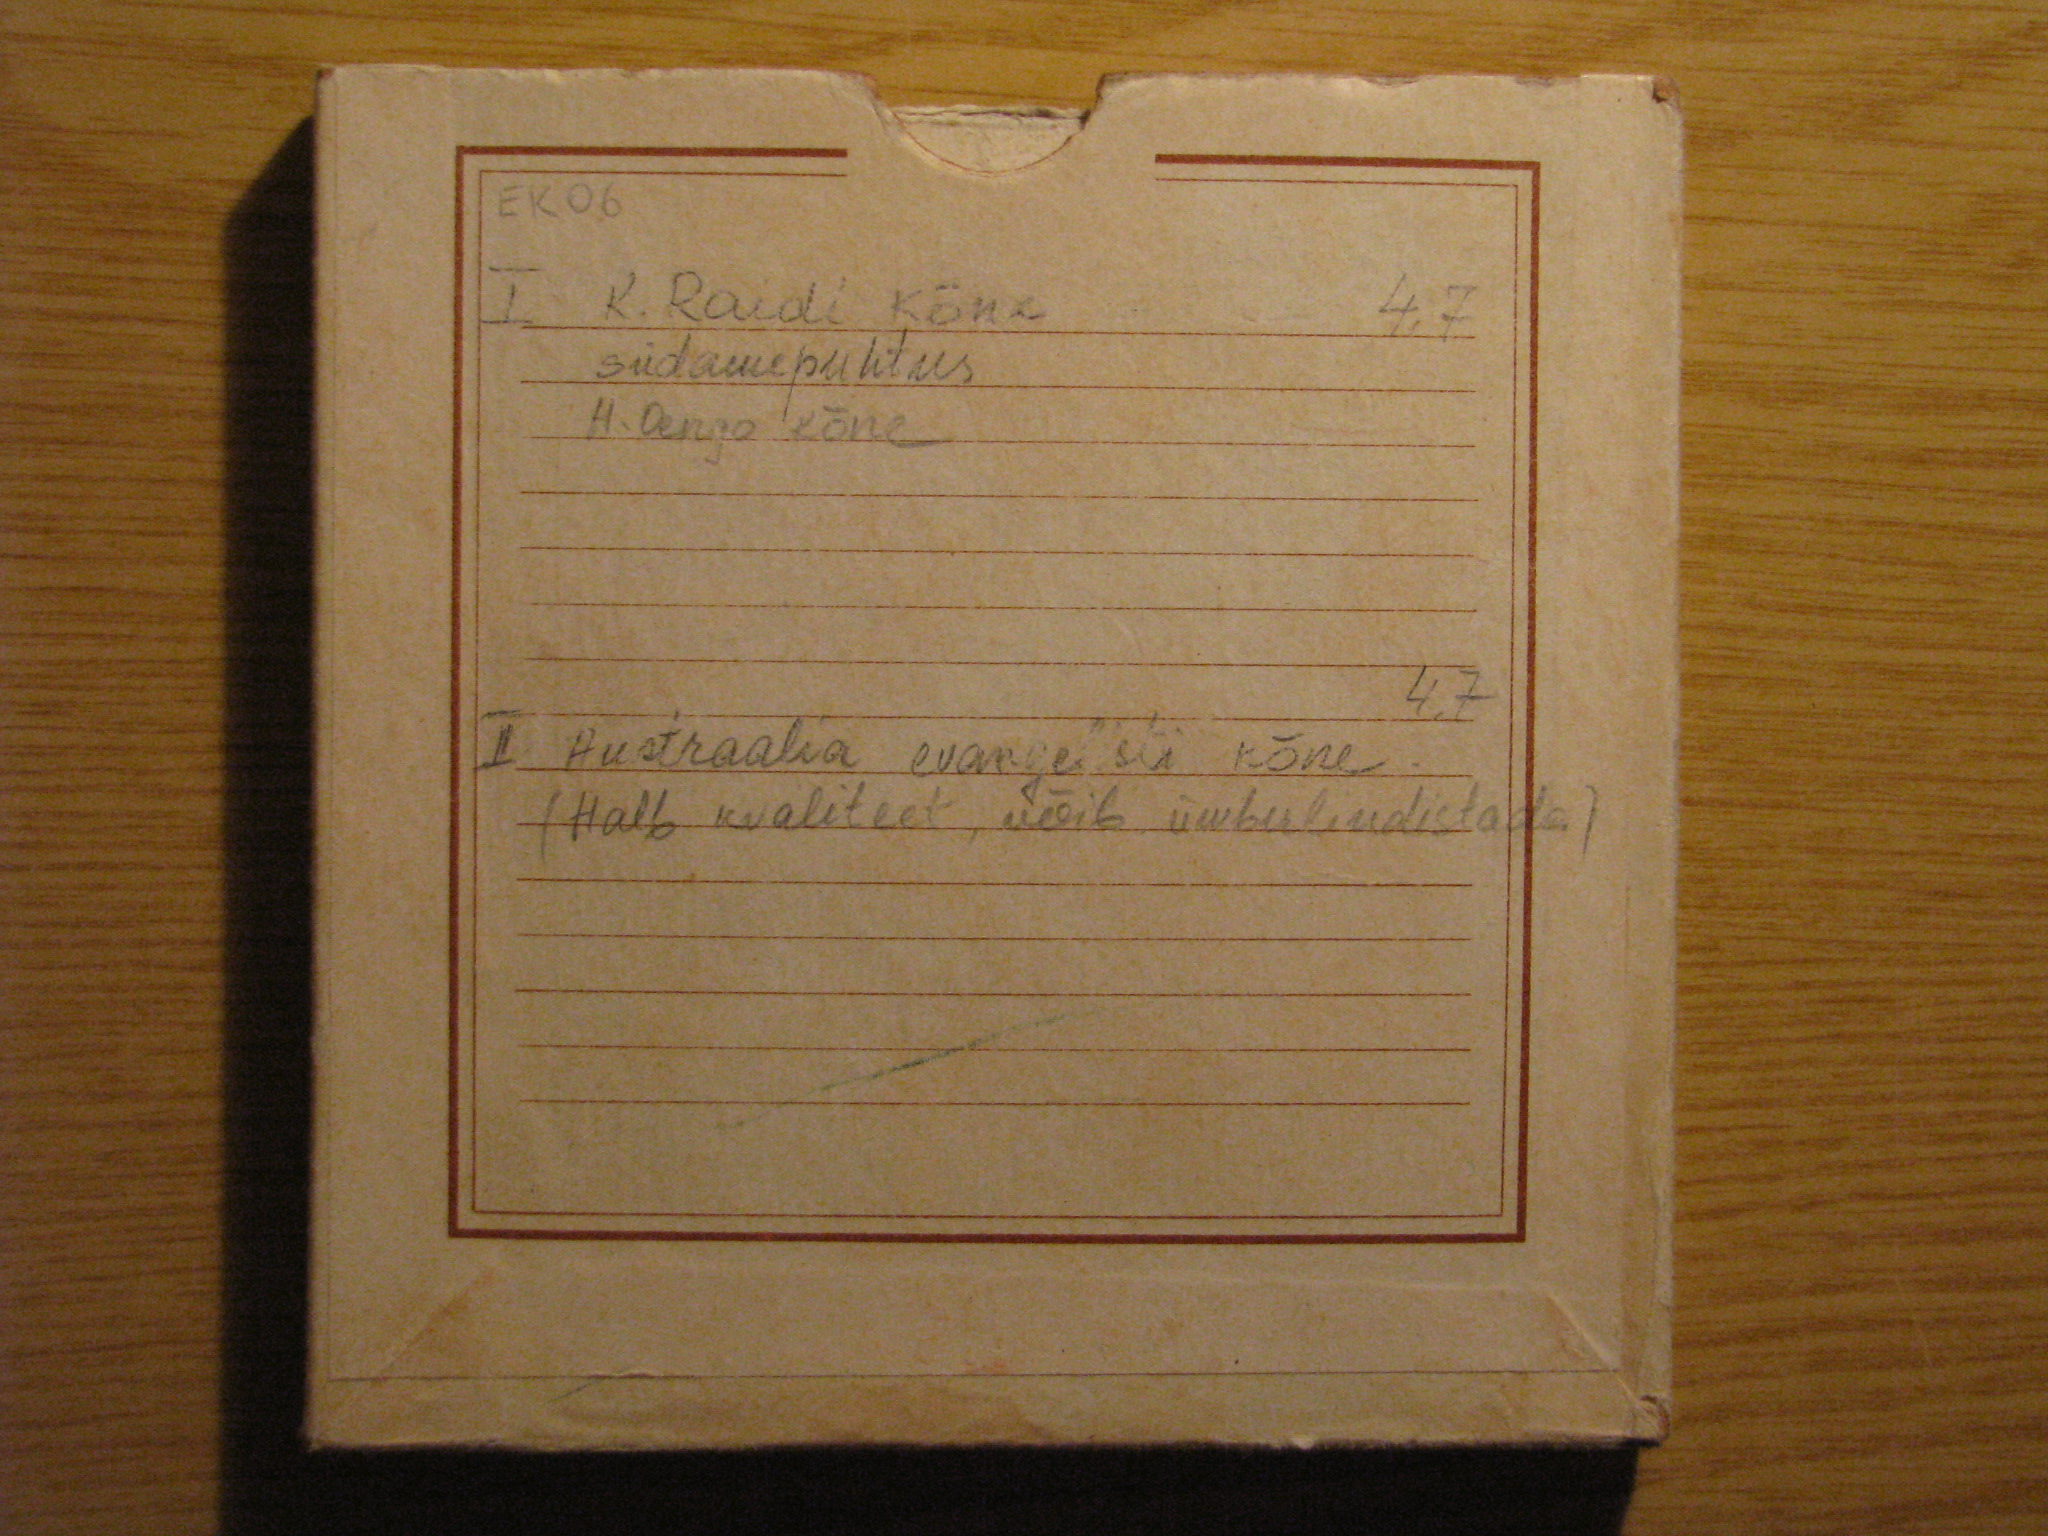 EK06
I K. Raidi kõne 4,7
südamepuhtus
H. kõne
4,7
II Austraalia evangelisti kõne.
(Halb kvaliteet, võib ümberlindistada)